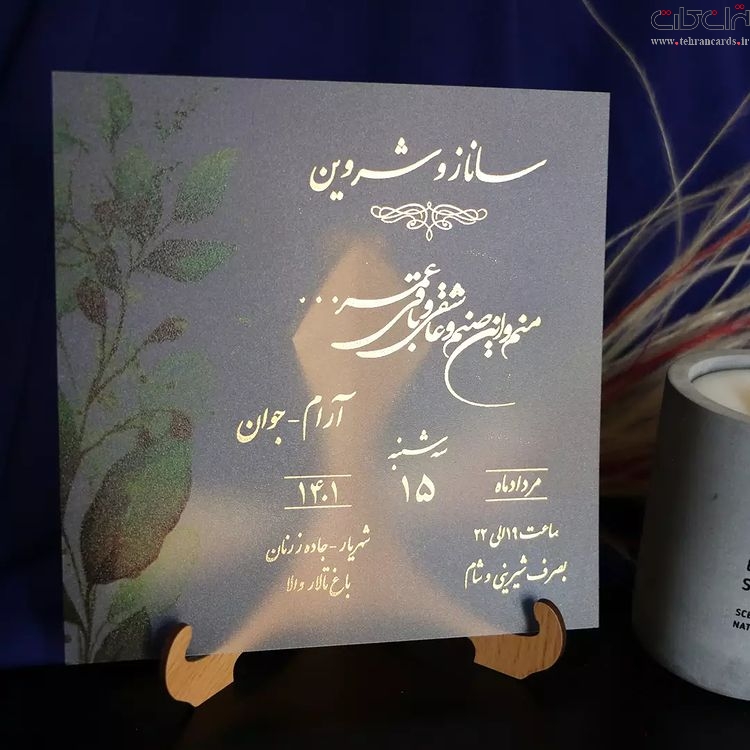 تهران کارت
www.tehrancards.ir
ساناز و شروین
منم و این صنم و عاشقی و باقی عمر...
آرام - جوان
سه شنبه
مردادماه
۱۵
۱۴۰۱
ساعت ۱۹ الی ۲۲
بصرف شیرینی و شام
شهریار - جاده زرنان
باغ تالار والا